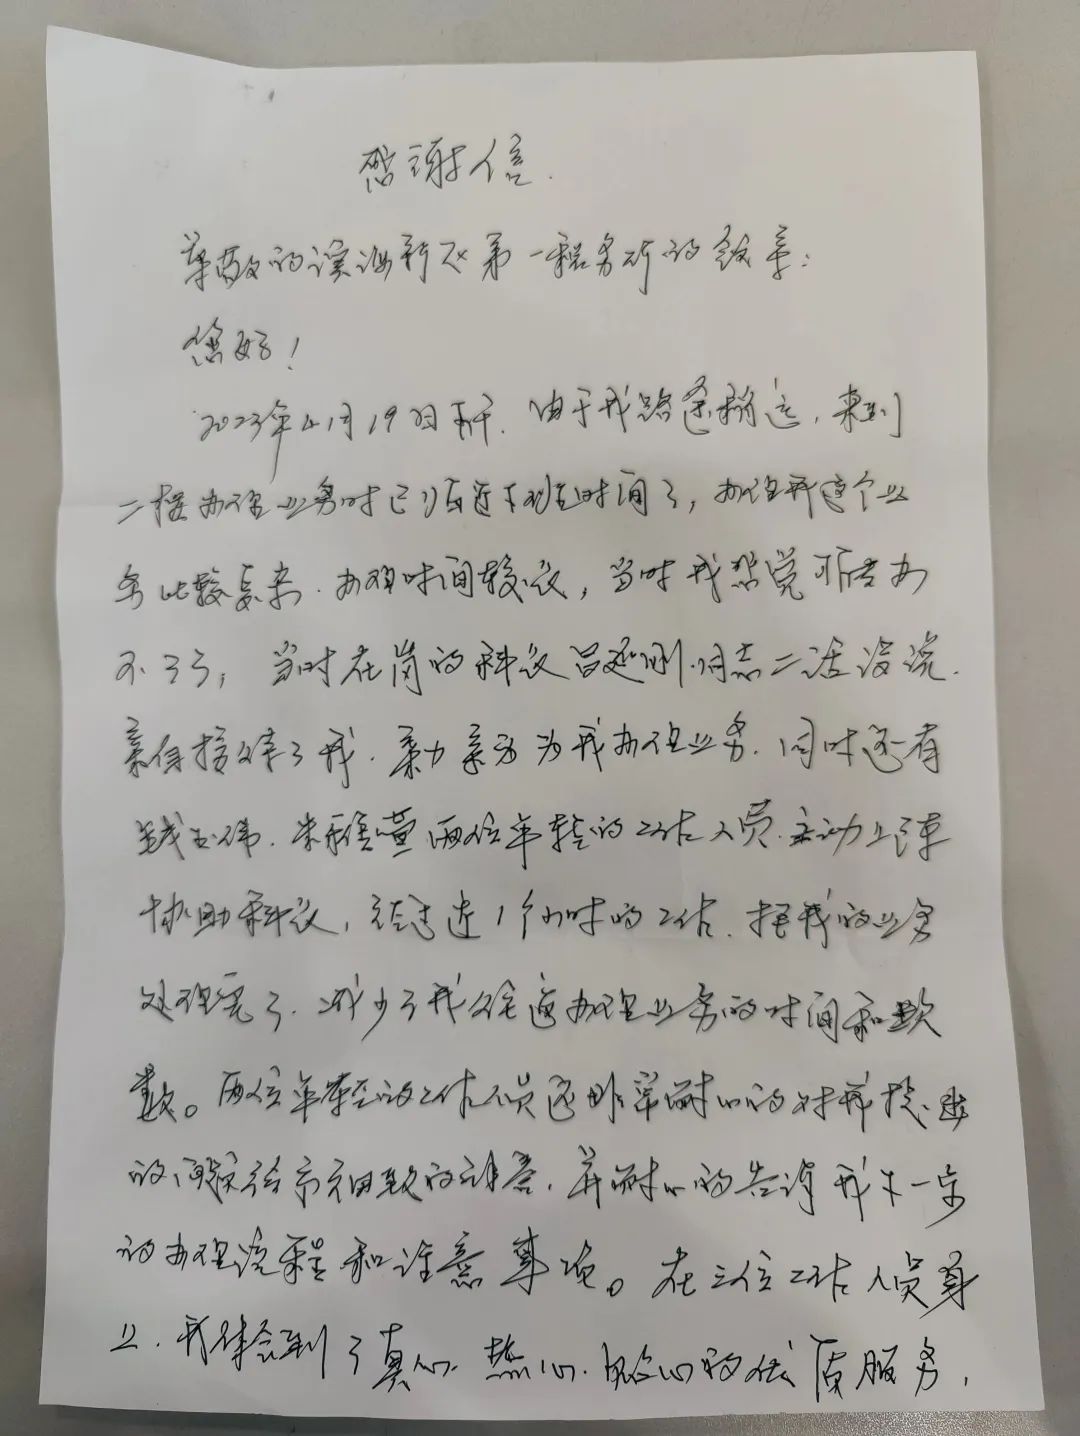 感谢信.
尊敬的滨海新区第一税务所的领导:
您好!
2023年4月19日上午.由于我路途稍远,来到
二楼办理业务时已经接近下班时间了,办理我这个业
务比较复杂.办理时间较长,当时我想觉可能办
不了了,当时在岗的科长吕延刚同志二话没说.
亲自接待了我.亲力亲为为我办理业务.同时还有
两位年轻的工作人员.主动上阵
协助科长,经过近1个小时的工作.把我的业务
处理完了.减少了我往返办理业务的时间和次
数。两位年轻的工作人员还非常耐心的对我提出
的问题给予细致的解答.并耐心的告诉我下一步
的办理流程和注意事项。在三位工作人员身
上.我体会到了真心.热心.贴心的优质服务,